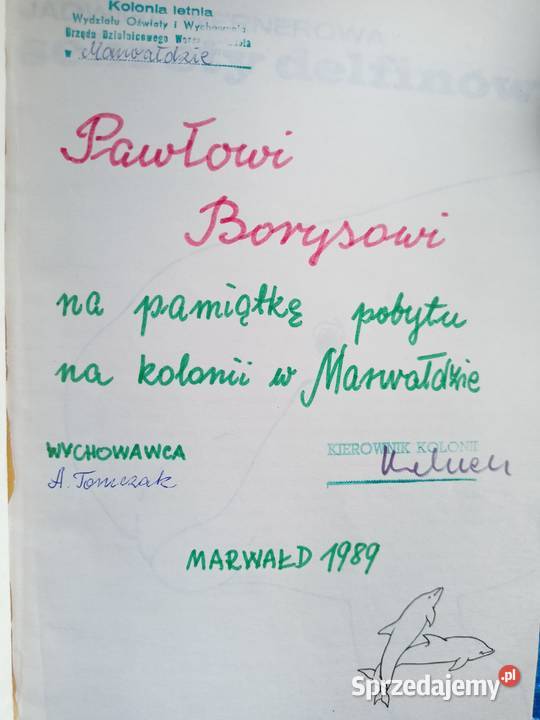 Kolonia letnia
Wydziału Oświaty i Wychowania
Urzędu Dzielnicowego
w Marwałdzie
delfinów
Pawłowi
Borysowi
na pamiątkę pobytu
na kolonii w Marwałdzie
WYCHOWAWCA
A. Tomczak
KIEROWNIK KOLONII
MARWAŁD 1989
Sprzedajemy.pl